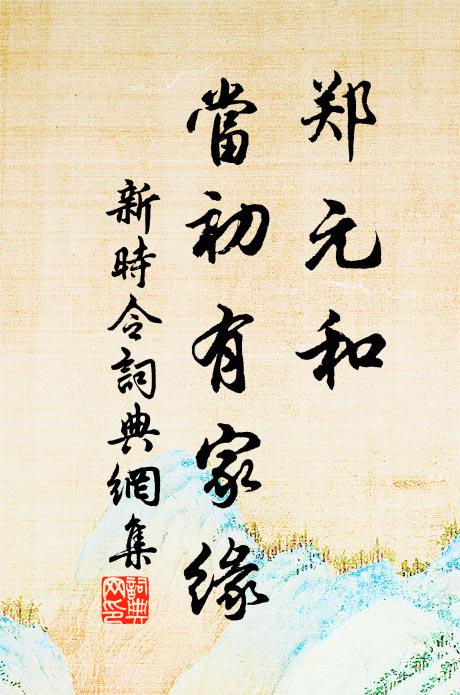 郑元和
當初有家緣
新時令詞典網集
詞典